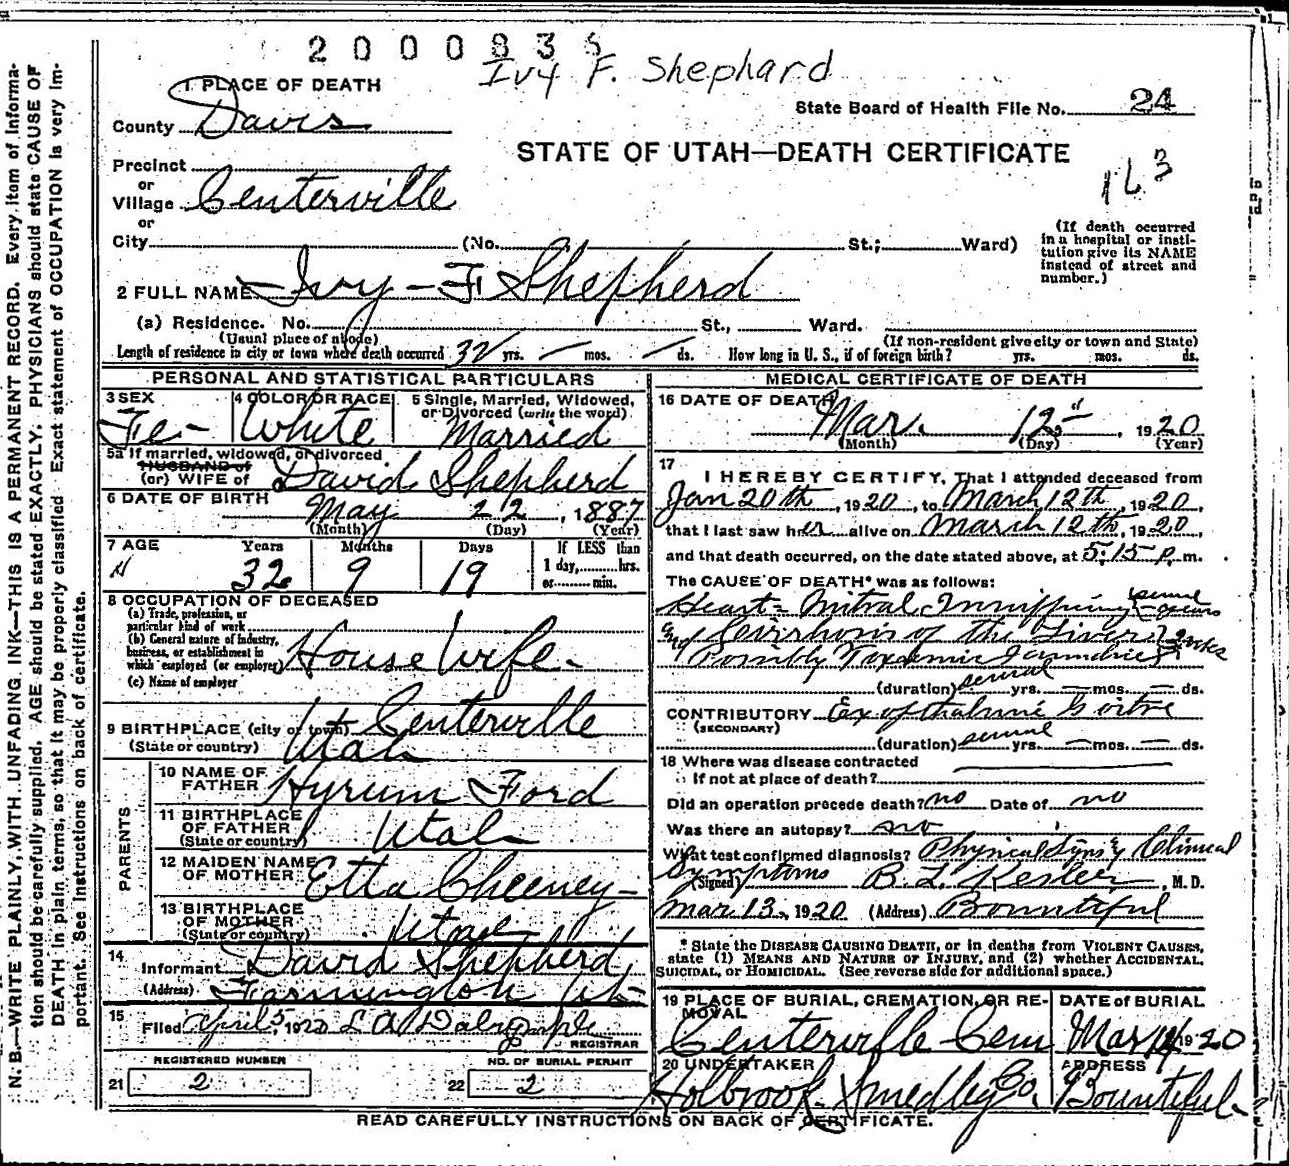 2000836
Ivy F. Shephard
1 PLACE OF DEATH
State Board of Health File No. 24
County Davis
STATE OF UTAH—DEATH CERTIFICATE
163
Precinct
or
Village Centerville
or
City (No. St.; Ward)
(If death occurred
in a hospital or insti-
tution give its NAME
instead of street and
number.)
2 FULL NAME Ivy - F Shepherd
(a) Residence. No. St., Ward.
(Usual place of abode) (If non-resident give city or town and State)
Length of residence in city or town where death occurred 32 yrs. — mos. — ds. How long in U. S., if of foreign birth? yrs. mos. ds.
PERSONAL AND STATISTICAL PARTICULARS
3 SEX 4 COLOR OR RACE 5 Single, Married, Widowed,
or Divorced (write the word)
Fe- White Married
5a If married, widowed, or divorced
HUSBAND of
(or) WIFE of David Shepherd
6 DATE OF BIRTH May 22, 1887
(Month) (Day) (Year)
7 AGE Years Months Days If LESS than
1 day, hrs.
or min.
32 9 19
8 OCCUPATION OF DECEASED
(a) Trade, profession, or
particular kind of work
(b) General nature of industry,
business, or establishment in
which employed (or employer)
House Wife-
(c) Name of employer
9 BIRTHPLACE (city or town) Centerville
(State or country) Utah
PARENTS
10 NAME OF
FATHER Hyrum Ford
11 BIRTHPLACE
OF FATHER
(State or country) Utah
12 MAIDEN NAME
OF MOTHER Etta Cheeney-
13 BIRTHPLACE
OF MOTHER
(State or country) Utah
14 Informant David Shepherd
(Address) Farmington Ut-
15 Filed April 5 1920 L A Dalrymple
REGISTRAR
REGISTERED NUMBER NO. OF BURIAL PERMIT
21 2 22 2
MEDICAL CERTIFICATE OF DEATH
16 DATE OF DEATH
Mar. 12, 1920
(Month) (Day) (Year)
17 I HEREBY CERTIFY, That I attended deceased from
Jan 20th, 1920, to March 12th, 1920,
that I last saw her alive on March 12th, 1920,
and that death occurred, on the date stated above, at 5:15 P. m.
The CAUSE OF DEATH* was as follows:
Heart = Mitral several years
and Cirrhosis of the Liver
Possibly Toxaemic
(duration) several yrs. — mos. — ds.
CONTRIBUTORY Exopthalmic Goitre
(SECONDARY)
(duration) several yrs. — mos. — ds.
18 Where was disease contracted
if not at place of death?
Did an operation precede death? no Date of no
Was there an autopsy? no
What test confirmed diagnosis? Physical Signs & Clinical
Symptoms
(Signed) B. L. Kesler, M. D.
Mar 13, 1920 (Address) Bountiful
* State the DISEASE CAUSING DEATH, or in deaths from VIOLENT CAUSES,
state (1) MEANS AND NATURE OF INJURY, and (2) whether ACCIDENTAL,
SUICIDAL, or HOMICIDAL. (See reverse side for additional space.)
19 PLACE OF BURIAL, CREMATION, OR RE-
MOVAL
DATE of BURIAL
Centerville Cem Mar 14 1920
20 UNDERTAKER ADDRESS
Holbrook Smedley Co. Bountiful-
READ CAREFULLY INSTRUCTIONS ON BACK OF CERTIFICATE.
N. B.—WRITE PLAINLY, WITH UNFADING INK—THIS IS A PERMANENT RECORD. Every item of informa-
tion should be carefully supplied. AGE should be stated EXACTLY. PHYSICIANS should state CAUSE OF
DEATH in plain terms, so that it may be properly classified. Exact statement of OCCUPATION is very im-
portant. See instructions on back of certificate.